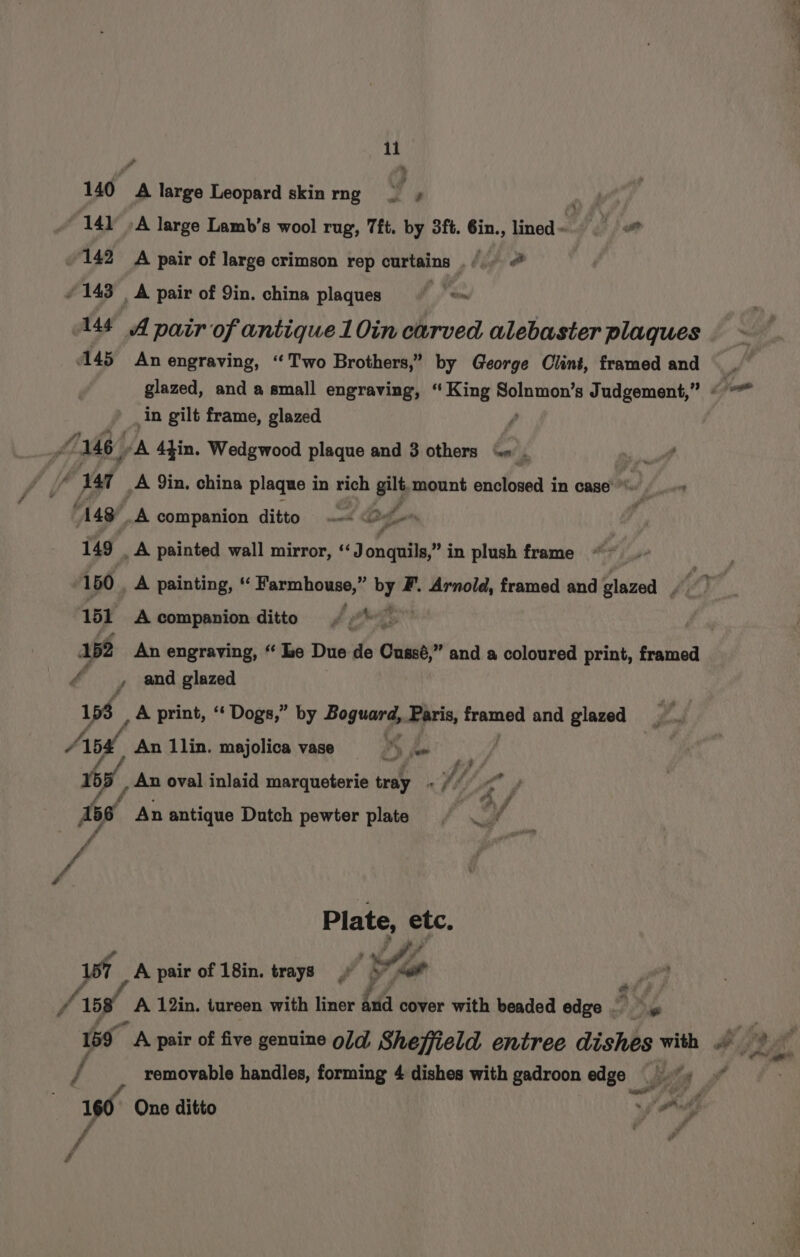 11
140 A large Leopard skin rng
141 A large Lamb's wool rug, 7ft. by 3ft. 6in., lined
142 A pair of large crimson rep curtains
143 A pair of 9in. china plaques
144 A pair of antique 10in carved alebaster plaques
145 An engraving, “Two Brothers,” by George Clint, framed and
glazed, and a small engraving, “King Solnmon's Judgement,”
in gilt frame, glazed
146 A 4½in. Wedgwood plaque and 3 others
147 A 9in. china plaque in rich gilt mount enclosed in case
148 A companion ditto
149 A painted wall mirror, “Jonquils,” in plush frame
150 A painting, “Farmhouse,” by F. Arnold, framed and glazed
151 A companion ditto
152 An engraving, “Le Due de Cussé,” and a coloured print, framed
and glazed
153 A print, “Dogs,” by Boguard, Paris, framed and glazed
154 An 11in. majolica vase
155 An oval inlaid marqueterie tray
156 An antique Dutch pewter plate
Plate, etc.
157 A pair of 18in. trays
158 A 12in. tureen with liner and cover with beaded edge
159 A pair of five genuine old Sheffield entree dishes with
removable handles, forming 4 dishes with gadroon edge
160 One ditto